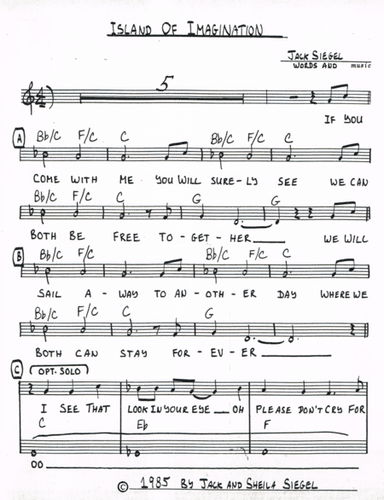 ISLAND OF IMAGINATION
JACK SIEGEL
WORDS AND music
5
IF YOU
A
Bb/C F/C C Bb/C F/C C
COME WITH ME YOU WILL SURE-LY SEE WE CAN
Bb/C F/C C G G
BOTH BE FREE TO-GET-HER____ WE WILL
B
Bb/C F/C C Bb/C F/C C
SAIL A-WAY TO AN-OTH-ER DAY WHERE WE
Bb/C F/C C G
BOTH CAN STAY FOR-EV-ER ____
C OPT. SOLO
I SEE THAT LOOK IN YOUR EYE __ OH PLEASE DON'T CRY FOR
C Eb F
OO____
© 1985 BY JACK AND SHEILA SIEGEL